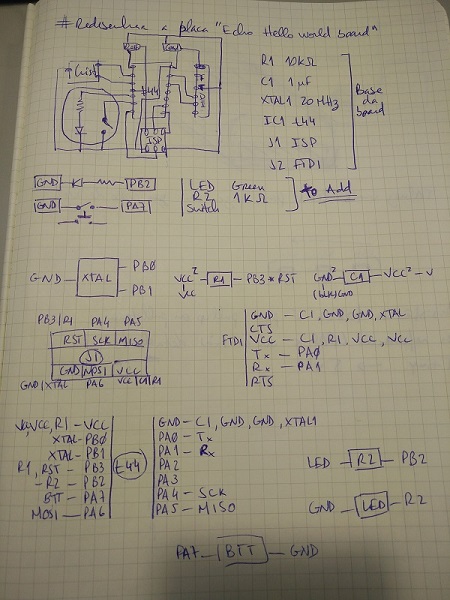 # Redesenhar a placa "Echo Hello world board"
Crist
t44
ISP
R1 10KΩ
C1 1 µF
XTAL1 20 MHz
IC1 t44
J1 ISP
J2 FTDI
Base da board
GND PB2
GND PA7
LED Green
R2 1KΩ
Switch
to Add
GND XTAL PB0
PB1
VCC² R1 PB3 * RST
VCC
GND² C1 VCC² - V
GND
PB3/R1 PA4 PA5
RST SCK MISO
J1
GND MOSI VCC
GND/XTAL PA6 VCC/C1/R1
FTDI
GND - C1, GND, GND, XTAL
CTS
VCC - C1, R1, VCC, VCC
Tx - PA0
Rx - PA1
RTS
VCC, R1 - VCC
XTAL - PB0
XTAL - PB1
R1, RST - PB3
- R2 - PB2
BTT - PA7
MOSI - PA6
t44
GND - C1, GND, GND, XTAL1
PA0 - Tx
PA1 - Rx
PA2
PA3
PA4 - SCK
PA5 - MISO
LED - R2 - PB2
GND - LED - R2
PA7 - BTT - GND